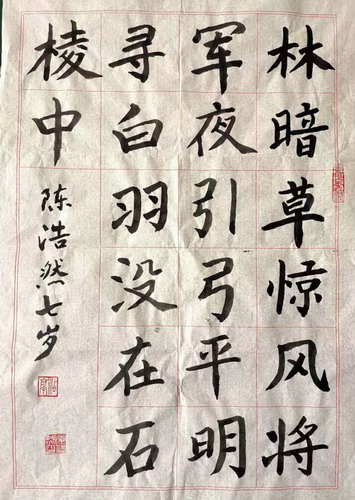 林暗草惊风将
军夜引弓平明
寻白羽没在石
棱中
陈浩然七岁